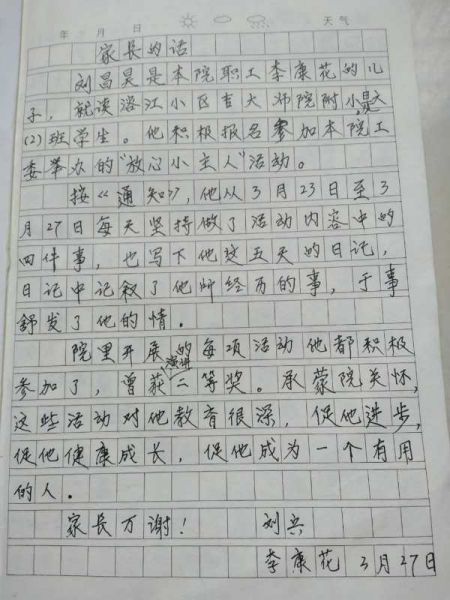 年 月 日 天气
家长的话
刘昌昊是本院职工李康花的儿
子，就读洛江小区吉大师院附小是六
(2)班学生。他积极报名参加本院工
委举办的“放心小主人”活动。
按《通知》，他从3月23日至3
月27日每天坚持做了活动内容中的
四件事，也写下他这五天的日记，
日记中记叙了他所经历的事，于事
舒发了他的情。
院里开展的每项活动他都积极
参加了，曾获演讲二等奖。承蒙院关怀，
这些活动对他教育很深，促他进步，
促他健康成长，促他成为一个有用
的人。
家长万谢！ 刘兵
李康花 3月27日